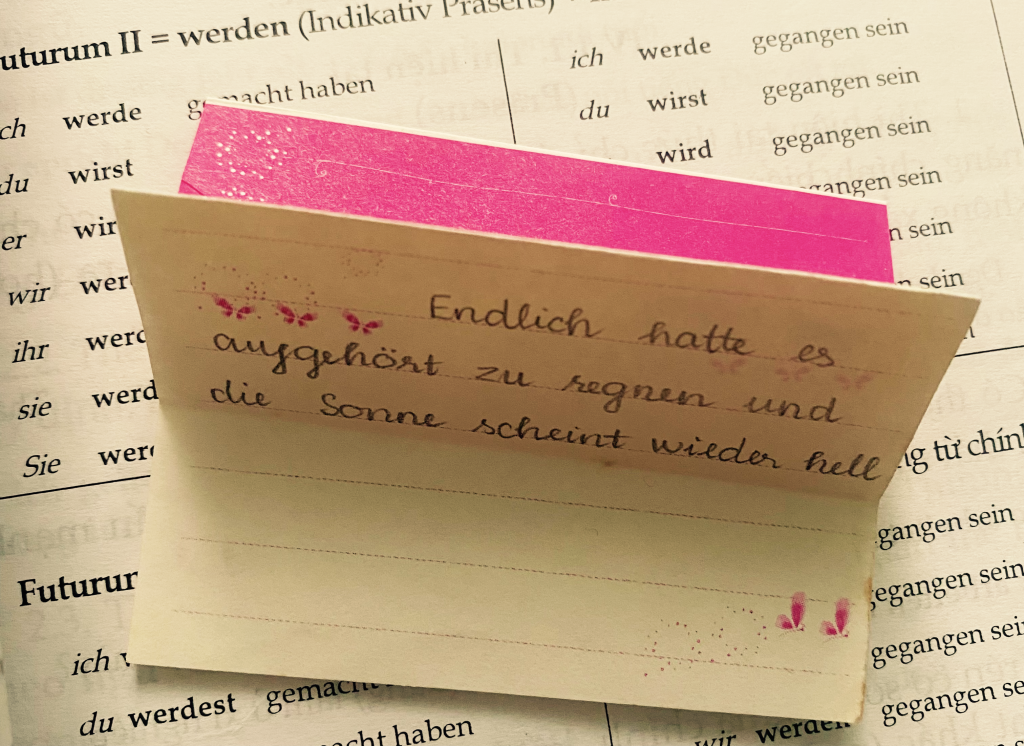 uturum II = werden (Indikativ Präsens)
ch werde gemacht haben
du wirst
er
wir
ihr
sie
Sie
ich werde gegangen sein
du wirst gegangen sein
wird gegangen sein
gegangen sein
n sein
n sein
Endlich hatte es
aufgehört zu regnen und
die Sonne scheint wieder hell
ng từ chính
Futurum
ich
du werdest gemacht
macht haben
gangen sein
gegangen sein
gegangen sein
wir werden gegangen se